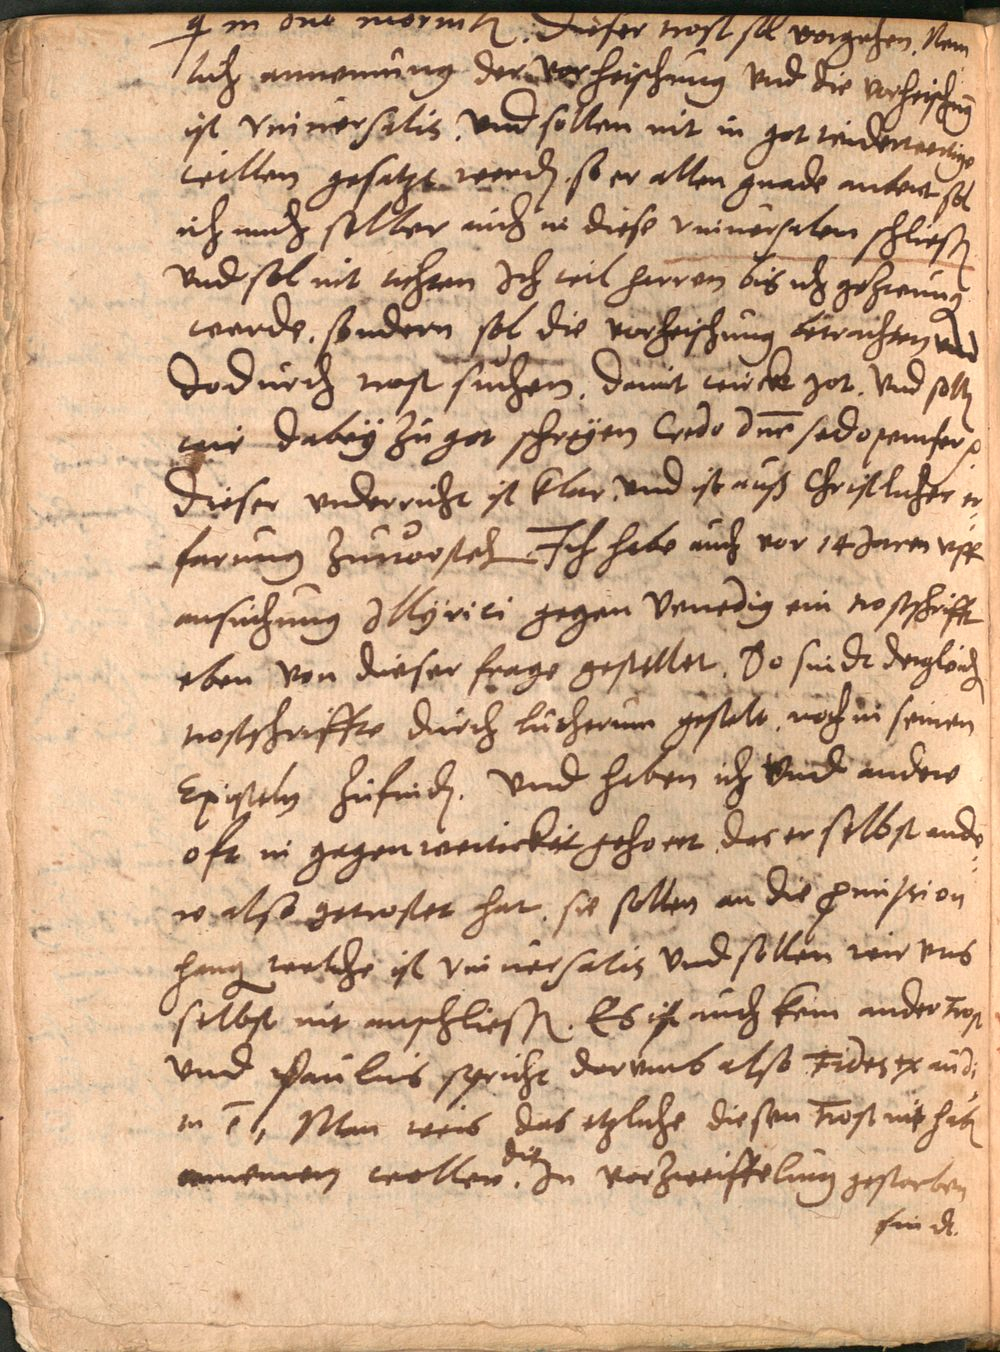 q in dno moriuntur. Dieser trost sol vorgehen. Nem
lich annemung der vorheischung vnd die vorheischung
ist vniuersalis. vnd sollen nit in got widerwertige
willen gesatzt werden. so er allen gnade anbeut sol
ich mich selber auch in diese vniuersalen schliessen
vnd sol nit achten Ich wil harren bis ich gezwung
werde. sondern sol die vorheischung betrachten vnd
dodurch trost suchen. damit wircket got. vnd sollen
wir dabeÿ zu got schreÿen Credo dne sed opem fer
Dieser vnderricht ist klar. vnd ist auß Christlicher er
farung zuuorstehen. Ich habe auch vor 14 Jaren vff
ansuchung Illyrici gegen Venedig ein trostschrifft
eben von dieser frage gestellet. So sindt dergleichen
trostschriffte durch Lutherum gestelt. noch in seinen
Episteln zufinden. Vnd haben ich vnd andere
oft in gegenwertickeit gehoert. das er selbst ande
re also getrostet hat. sie sollen an die promission
hang welche ist vniuersalis vnd sollen wir vns
selbst nit auschliessen. Es ist auch kein ander trost
vnd Paulus spricht dorumb also Fides ex audi
tu est, Man weis das etzliche diesen trost nit haben
annemen wollen. die In vorzweiffelung gestorben
sindt.